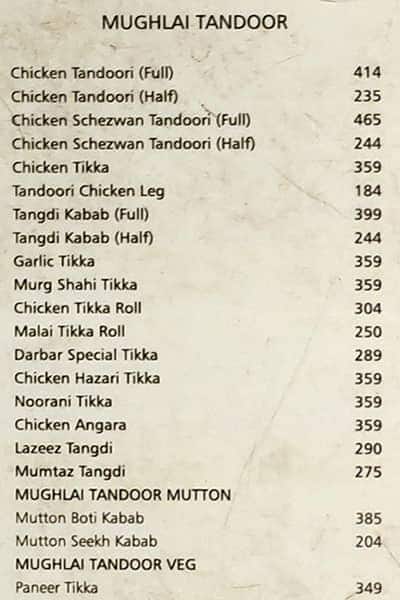 MUGHLAI TANDOOR
Chicken Tandoori (Full) 414
Chicken Tandoori (Half) 235
Chicken Schezwan Tandoori (Full) 465
Chicken Schezwan Tandoori (Half) 244
Chicken Tikka 359
Tandoori Chicken Leg 184
Tangdi Kabab (Full) 399
Tangdi Kabab (Half) 244
Garlic Tikka 359
Murg Shahi Tikka 359
Chicken Tikka Roll 304
Malai Tikka Roll 250
Darbar Special Tikka 289
Chicken Hazari Tikka 359
Noorani Tikka 359
Chicken Angara 359
Lazeez Tangdi 290
Mumtaz Tangdi 275
MUGHLAI TANDOOR MUTTON
Mutton Boti Kabab 385
Mutton Seekh Kabab 204
MUGHLAI TANDOOR VEG
Paneer Tikka 349